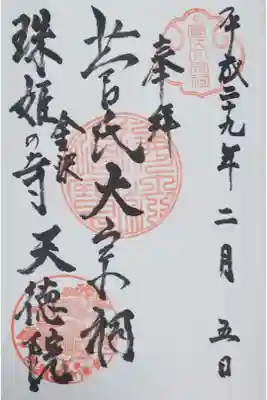 平成二十九年二月五日
奉拝
菅氏大宗祠
金沢
珠姫の寺 天徳院